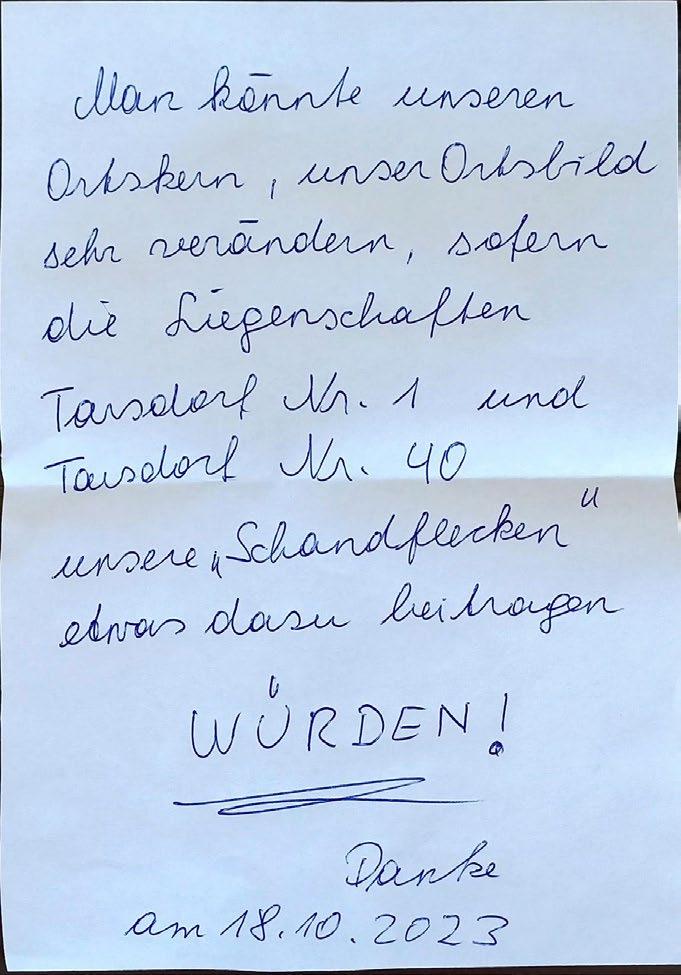 Man könnte unseren
Ortskern, unser Ortsbild
sehr verändern, sofern
die Liegenschaften
Tarsdorf Nr. 1 und
Tarsdorf Nr. 40
unsere „Schandflecken“
etwas dazu beitragen
WÜRDEN!
Danke
am 18.10.2023